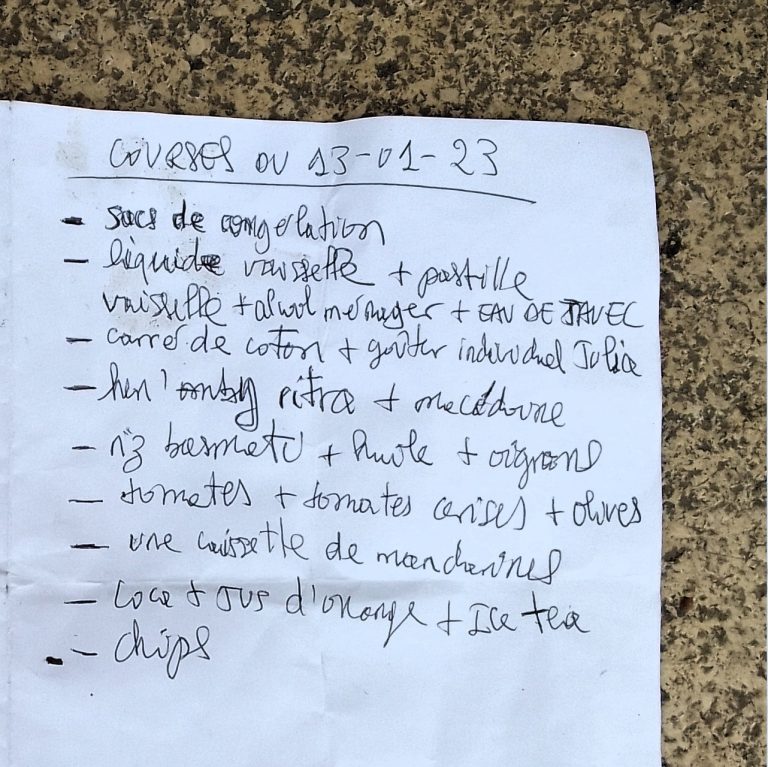 COURSES DU 13-01-23
- sacs de congelation
- liquide vaisselle + pastille
vaisselle + alcool ménager + EAU DE JAVEL
- carré de coton + goûter individuel Julia
- pitra + macédoine
- riz basmati + huile + oignons
- tomates + tomates cerises + olives
- une caissette de mandarines
- coca + JUS d'orange + Ice tea
- chips